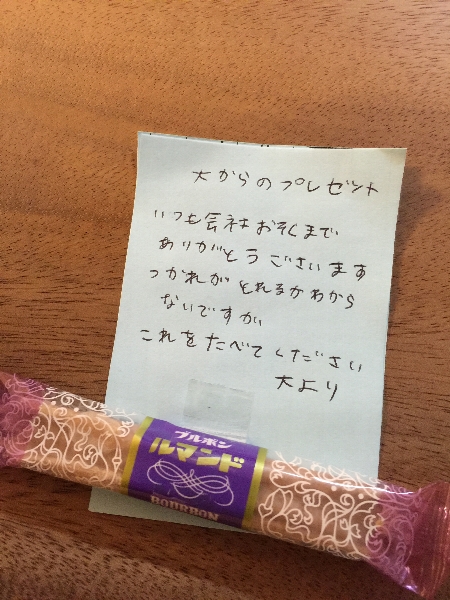 大からのプレゼント
いつも会社おそくまで
ありがとうございます
つかれがとれるかわから
ないですが
これをたべてください
大より
ブルボン
ルマンド
BOURBON